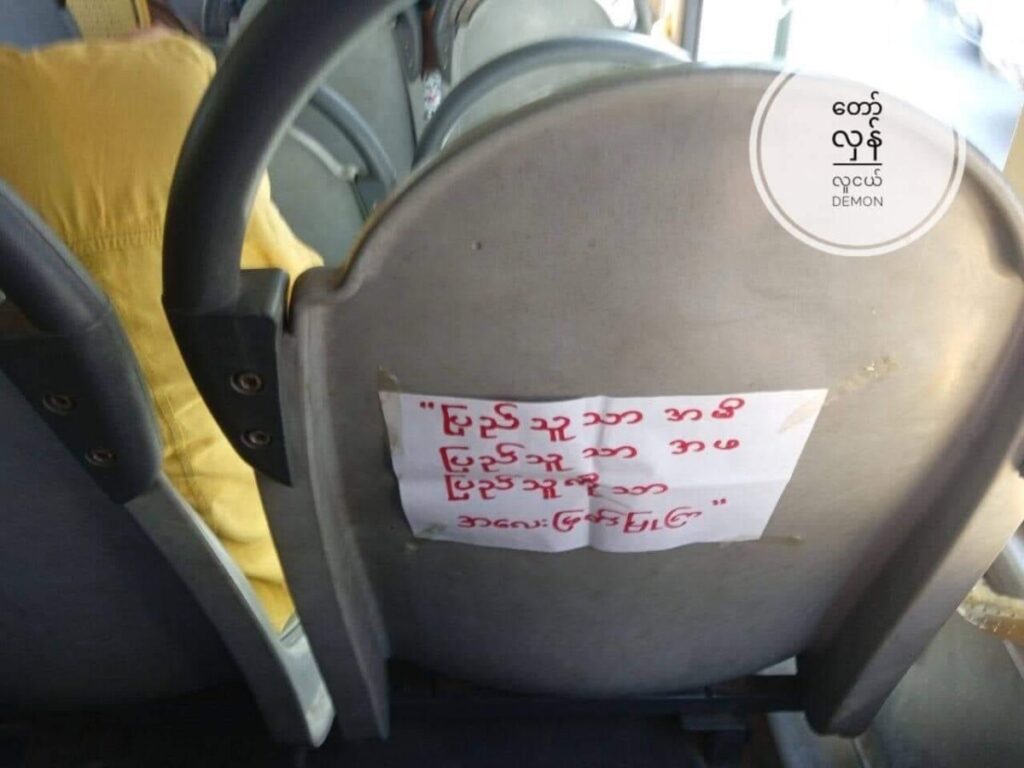 တော်
လှန်
လူငယ်
DEMON
"ပြည်သူသာ အမိ
ပြည်သူသာ အဖ
ပြည်သူ့ကိုသာ
အလေးမြတ်ပြုကြ"